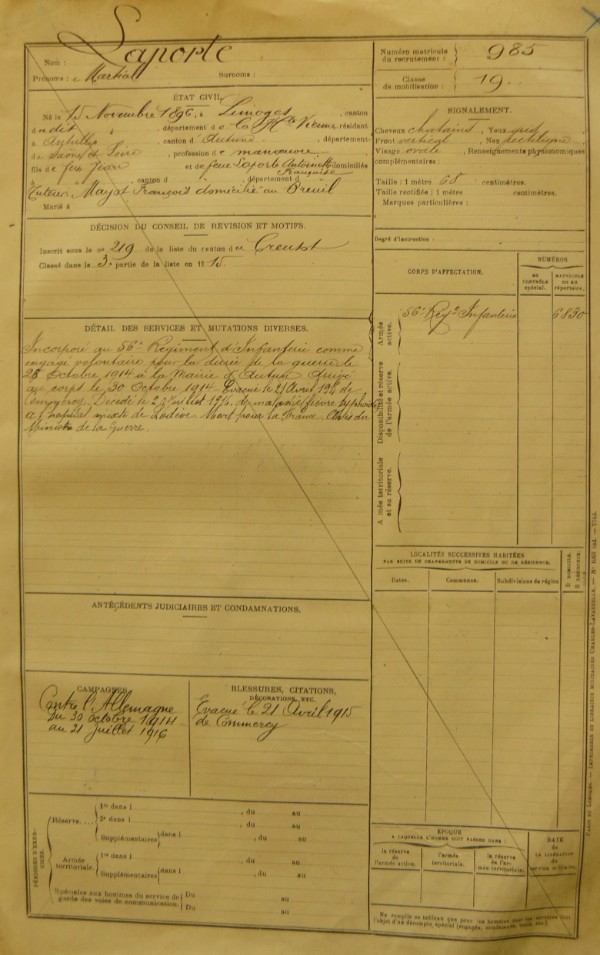 Nom : Laporte
Prénoms : Martial Surnoms :
Numéro matricule du recrutement : 985
Classe de mobilisation : 19
ÉTAT CIVIL.
Né le 15 Novembre 1896, à Limoges, canton
dudit, département de la Hte Vienne, résidant
à , canton d'Autun, département
de Saône et Loire, profession de manœuvre
fils de feu Jean et de feue Laporte Antoinette domiciliés
Françoise
à , canton d , département d
Tuteur Mayot François domicilié au Breuil
Marié à
SIGNALEMENT.
Cheveux chatains, Yeux gris
Front vertical, Nez rectiligne
Visage ovale, Renseignements physionomiques
complémentaires :
Taille : 1 mètre 65 centimètres.
Taille rectifiée : 1 mètre centimètres.
Marques particulières :
Degré d'instruction :
DÉCISION DU CONSEIL DE RÉVISION ET MOTIFS.
Inscrit sous le no 219 de la liste du canton du Creusot
Classé dans la 3e partie de la liste en 1915.
DÉTAIL DES SERVICES ET MUTATIONS DIVERSES.
Incorporé au 56e Régiment d'Infanterie comme
engagé volontaire pour la durée de la guerre le
28 Octobre 1914 à la Mairie d'Autun. Arrivé
au corps le 30 Octobre 1914. Evacué le 21 Avril 191 de
Commercy. Décédé le Juillet 191 de maladie fièvre typhoïde
à l'hôpital mixte de Lodève. Mort pour la France. Avis du
Ministre de la Guerre.
CORPS D'AFFECTATION.
NUMÉROS
au contrôle spécial.
matricule ou au répertoire.
Armée active.
56e Regt Infanterie 6830
Disponibilité et réserve de l'armée active.
Armée territoriale et sa réserve.
LOCALITÉS SUCCESSIVES HABITÉES
PAR SUITE DE CHANGEMENTS DE DOMICILE OU DE RÉSIDENCE.
Dates. Communes. Subdivisions de région D. DOMICILE. R. RÉSIDENCE.
ANTÉCÉDENTS JUDICIAIRES ET CONDAMNATIONS.
CAMPAGNES.
Contre l'Allemagne
du 30 octobre 1914
au 21 juillet 1916
BLESSURES, CITATIONS,
DÉCORATIONS, ETC.
Evacué le 21 Avril 1915
de Commercy
PÉRIODES D'EXERCICES.
Réserve.... 1re dans l , du au
2e dans l , du au
Supplémentaires dans l , du au
Armée territoriale. 1re dans l , du au
Supplémentaires dans l , du au
Spéciales aux hommes du service de garde des voies de communication. Du au
Du au
ÉPOQUE
A LAQUELLE L'HOMME DOIT PASSER DANS :
la réserve de l'armée active.
l'armée territoriale.
la réserve de l'armée territoriale.
DATE
de
LA LIBÉRATION
du
service militaire.